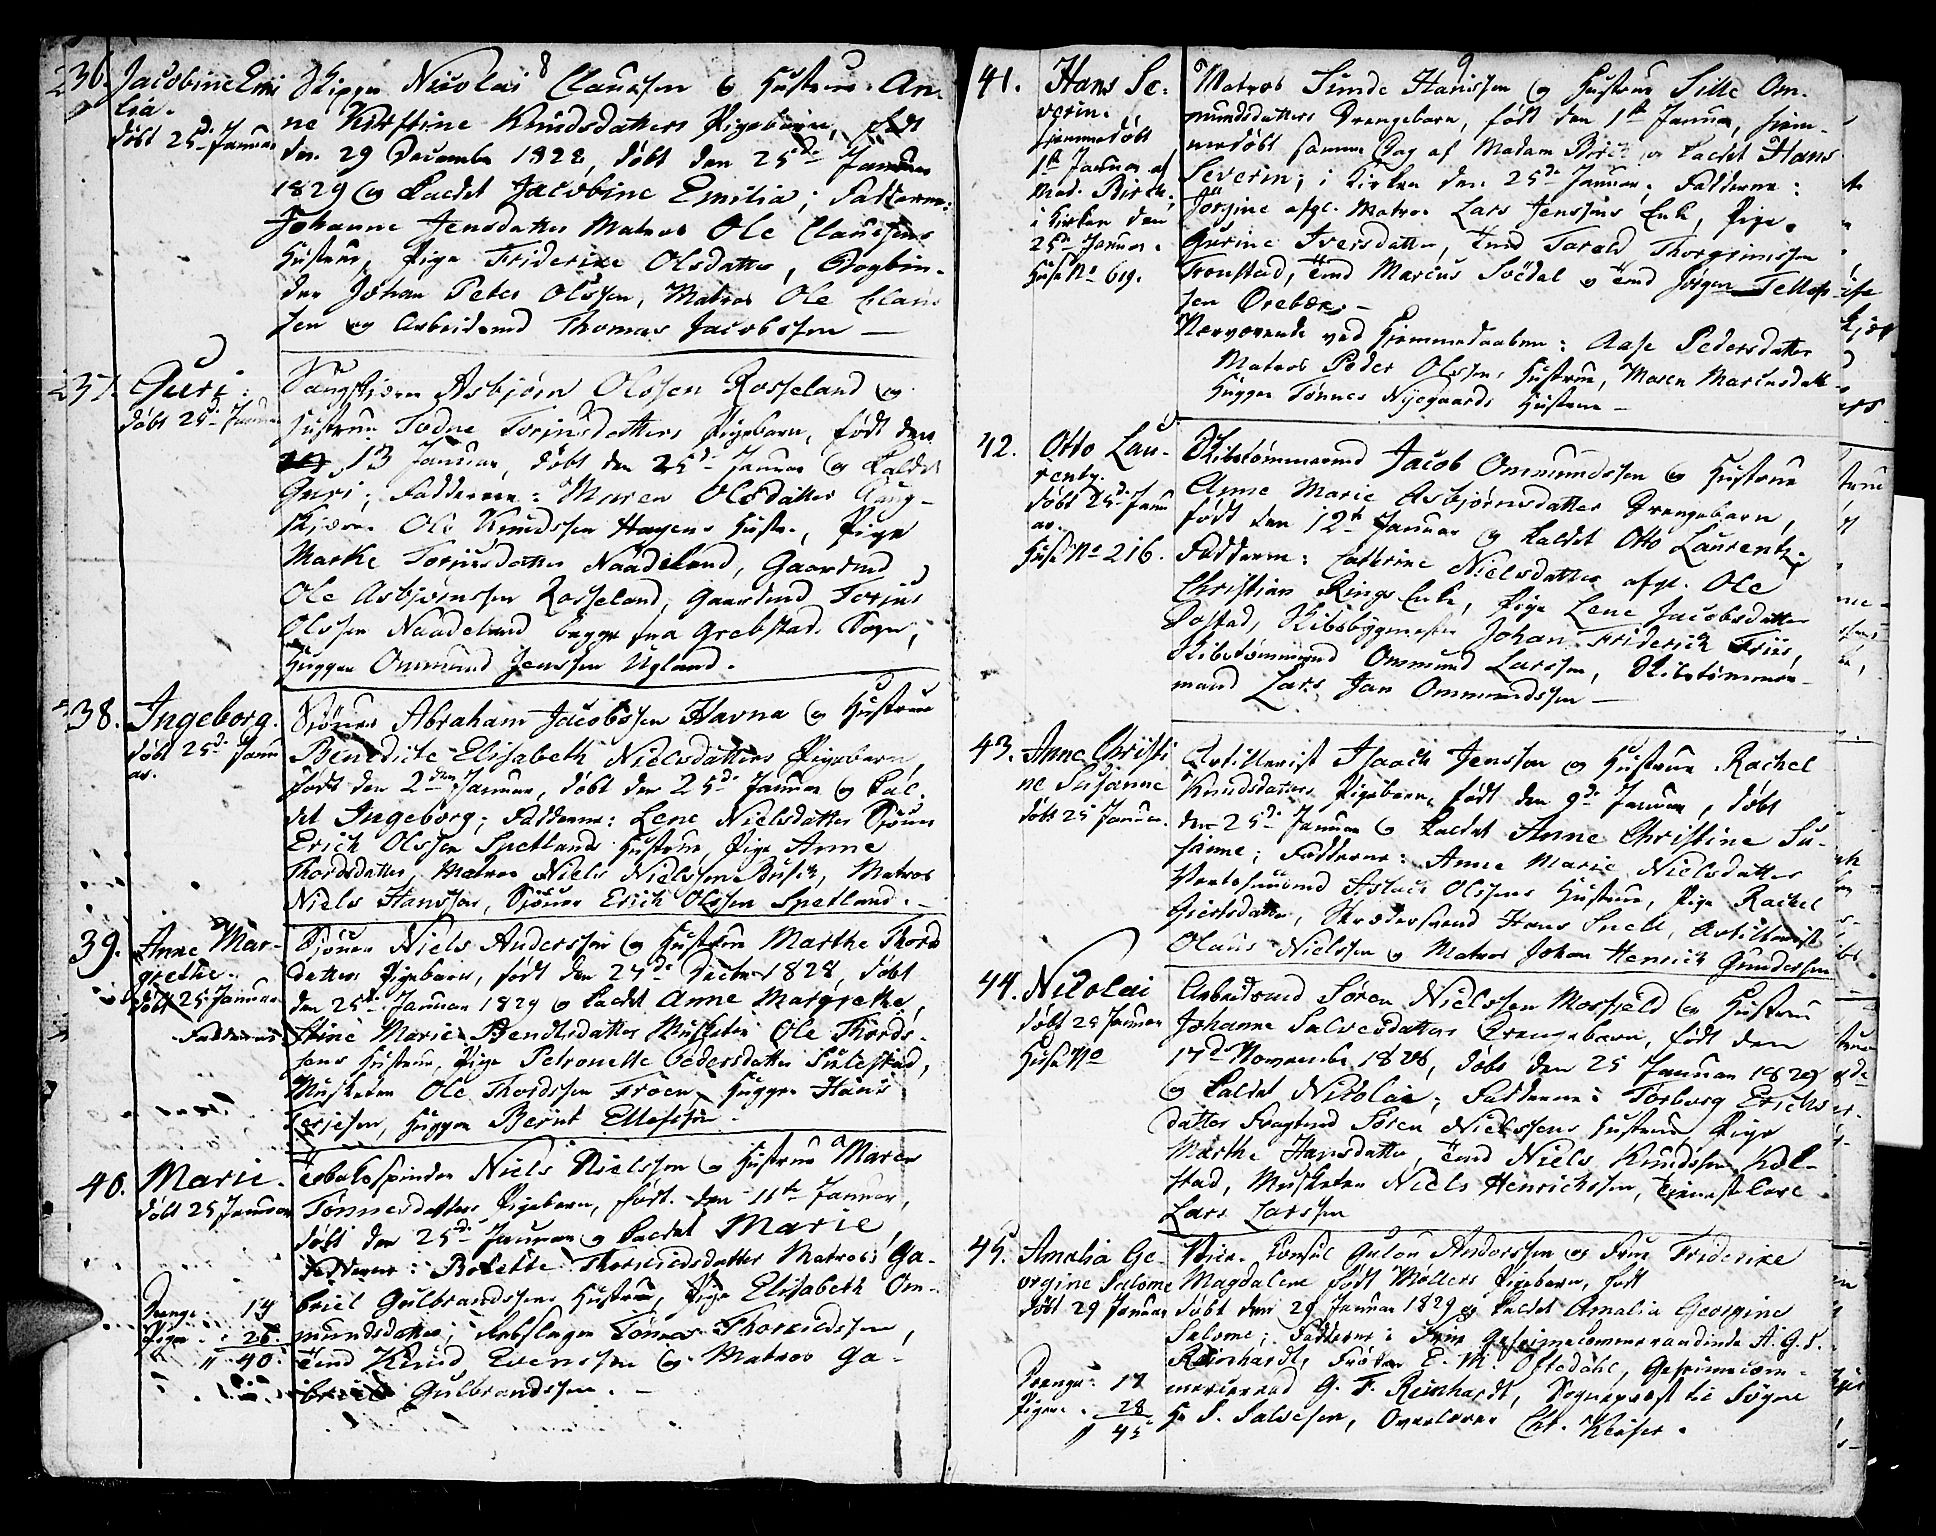 8
36. Jacobine Emi
lia.
døbt 25de Januar
Skipper Nicolai Claussen og Hustrue An-
ne Kirstine Knudsdatters Pigebarn, født
den 29 December 1828, døbt den 25de Januar
1829 og kaldt Jacobine Emilia; Fadderne:
Johanne Jensdatter Matros Ole Claussens
Hustrue, Pige Friderike Olsdatter, Bogbin-
der Johan Peter Olssen, Matros Ole Claus
sen og Arbeidsmd Thomas Jacobssen —
37. Guri.
døbt 25de Januar
Asbjørn Olssen Rosseland og
Hustrue Todne Torjusdatters Pigebarn, født den
13 Januar, døbt den 25de Januar og kaldet
Guri; Fadderne: Maren Olsdatter Saug-
skjærer Ole Knudssen Hagens Hustr., Pige
Marthe Torjusdatter Naadeland, Gaardmd
Ole Asbjørnssen Rosseland, Gaardmd Torjus
Olssen Naadeland begge fra Grebstad Sogn,
Hugger Ommund Jenssen Ugland.
38. Ingeborg.
døbt 25de Janu
ar.
Sjouer Abraham Jacobssen Havna og Hustrue
Benedicte Elisabeth Nielsdatters Pigebarn,
født den 2den Januar, døbt den 25de Januar og kal-
det Ingeborg; Fadderne: Lene Nielsdatter Sjouer
Erich Olssen Spetlands Hustrue, Pige Anne
Thordsdatter, Matros Niels Nielssen Busch, Matros
Niels Hanssen, Sjouer Erich Olssen Spetland. —
39. Anne Mar-
grethe.
døbt 25 Januar
Fadderne:
Sjouer Niels Anderssen og Hustrue Marthe Thords
datters Pigebarn, født den 27de Decbr 1828, døbt
den 25de Januar 1829 og kaldt Anne Margrethe,
Stine Marie Bendtsdatter Musketer Ole Thords-
sens Hustrue, Pige Petronelle Pedersdatter Sulestad,
Musketer Ole Thordssen Troen, Hugger Hans
Terjesen, Hugger Bernt Ellefsen.
40. Marie.
døbt 25 Januar
Tobaksspinder Niels Nielssen og Hustrue Maren
Tønnesdatters Pigebarn, født den 11te Januar,
døbt den 25de Januar og kaldet Marie,
Fadderne: Bolette Thorkildsdatter Matros Ga-
briel Gulbrandssens Hustrue, Pige Elisabeth Om-
mundsdatter, Rebslager Tønnes Thorkildssen,
Tmd Knud Evenssen og Matros Ga-
briel Gulbrandssen. —
Drenge: 14
Piger: 26
40.
9
41. Hans Se-
verin.
hjemmedøbt
1ste Januar af
Mad. Birch,
i Kirken den
25de Januar.
Huse No 619.
Matros Sunde Hanssen og Hustrue Sille Om-
mundsdatters Drengebarn, født den 1ste Januar, hjem-
medøbt samme Dag af Madam Birch og kaldt Hans
Severin; i Kirken den 25de Januar; Fadderne:
Jørgine afgl. Matros Lars Jenssens Enke, Pige
Gurine Iversdatter, Tmd Tarald Thorgrimssen
Tronstad, Tmd Marcus Sødal og Tmd Jørgen Tellef-
senØrebæk. —
Nærværende ved Hjemmedaaben: Aase Pedersdatter
Matros Peder Olssens Hustrue, Maren Marcusdatt
Hugger Tønnes Nyegaards Hustrue —
42. Otto Lau-
rentz.
døbt 25de Janu
ar.
Huse No 216.
Skibstømmermd Jacob Ommundssen og Hustrue
Anne Marie Asbjørnsdatters Drengebarn,
født den 12te Januar og kaldet Otto Laurentz.
Fadderne: Cathrine Nielsdatter afgl. Ole
Christian Rings Enke, Pige Lene Jacobsdatter
Dolstad, Skibsbygmester Johan Friderich Friis,
Skibstømmermd Ommund Larssen, Skibstømmer-
mand Lars Jan Ommundssen —
43. Anne Christi
ne Susanne
døbt 25 Januar.
Artillerist Isaach Jenssen og Hustrue Rachel
Knudsdatters Pigebarn, født den 9de Januar, døbt
den 25de Januar og kaldet Anne Christine Su-
sanne; Fadderne: Anne Marie Nielsdatter
Aslach Olssens Hustrue, Pige Rachel
Giertsdatter, Skrædersvend Hans Snell, Artillerist
Olaus Nielssen og Matros Johan Henrich Gunderssen
44. Nikolai
døbt 25 Januar
Huse No
Arbeidsmd Søren Nielssen Mosfjeld og Hustrue
Johanne Salvesdatters Drengebarn, født den
17de November 1828, døbt den 25 Januar 1829
og kaldet Nikolai; Fadderne: Torborg Erichs
datter Fragtmd Søren Nielssens Hustrue, Pige
Marthe Hansdatter, Tmd Niels Knudssen Kol-
stad, Musketer Niels Henrichssen, Tjenestekarl
Lars Larssen
45. Amalia Ge-
orgine Salome
døbt 29 Januar
Vice-Konsul Gulow Anderssen og Frue Friderike
Magdalene født Møllers Pigebarn, født
døbt den 29 Januar 1829 og kaldet Amalia Georgine
Salome; Fadderne: Frue Geheimecommerraadinde A. G. S.
Reinhardt, Frøken E. M. Oftedahl, Geheimecom-
merceraad G. F. Reinhardt, Sogneprest til Søgne
Hr S. Salvesen, Overlærer Chr. Keyser.
Drenge: 17
Piger: 28
45